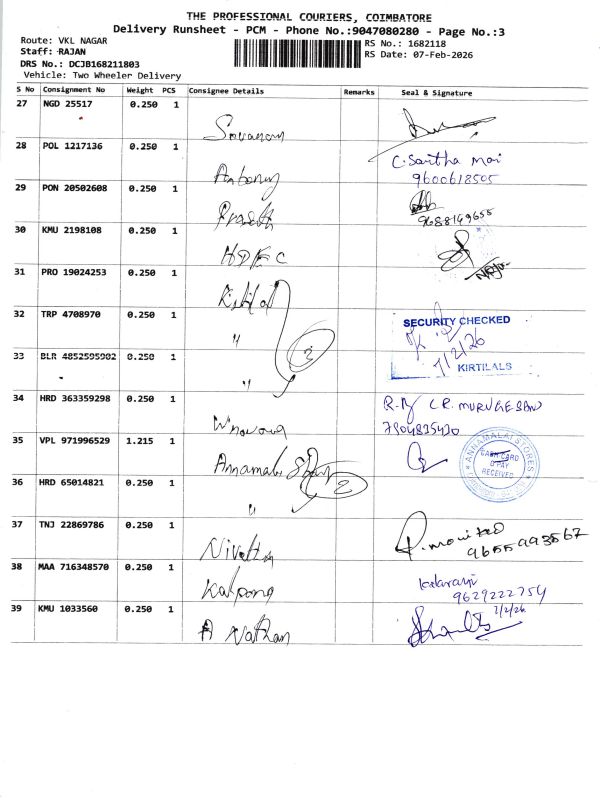 THE PROFESSIONAL COURIERS, COIMBATORE
Delivery Runsheet - PCM - Phone No.:9047080280 - Page No.:3
Route: VKL NAGAR
Staff: RAJAN
DRS No.: DCJB168211803
Vehicle: Two Wheeler Delivery
RS No.: 1682118
RS Date: 07-Feb-2026
S No Consignment No Weight PCS Consignee Details Remarks Seal & Signature
27 NGD 25517 0.250 1
28 POL 1217136 0.250 1 Antony C. Saritha Mai
9600618505
29 PON 20502608 0.250 1 Prasath
9688149655
30 KMU 2198108 0.250 1 HDFC
31 PRO 19024253 0.250 1
32 TRP 4708970 0.250 1 " SECURITY CHECKED
7/2/26
KIRTILALS
33 BLR 4852595902 0.250 1 "
34 HRD 363359298 0.250 1 (R. MURUGESAN)
35 VPL 971996529 1.215 1 Annamalai ANNAMALAI STORES
CASH CARD
G PAY
RECEIVED
36 HRD 65014821 0.250 1 " 2
37 TNJ 22869786 0.250 1
9655993567
38 MAA 716348570 0.250 1 Kalpana
9629222754
39 KMU 1033560 0.250 1 A Nathan 7/2/26